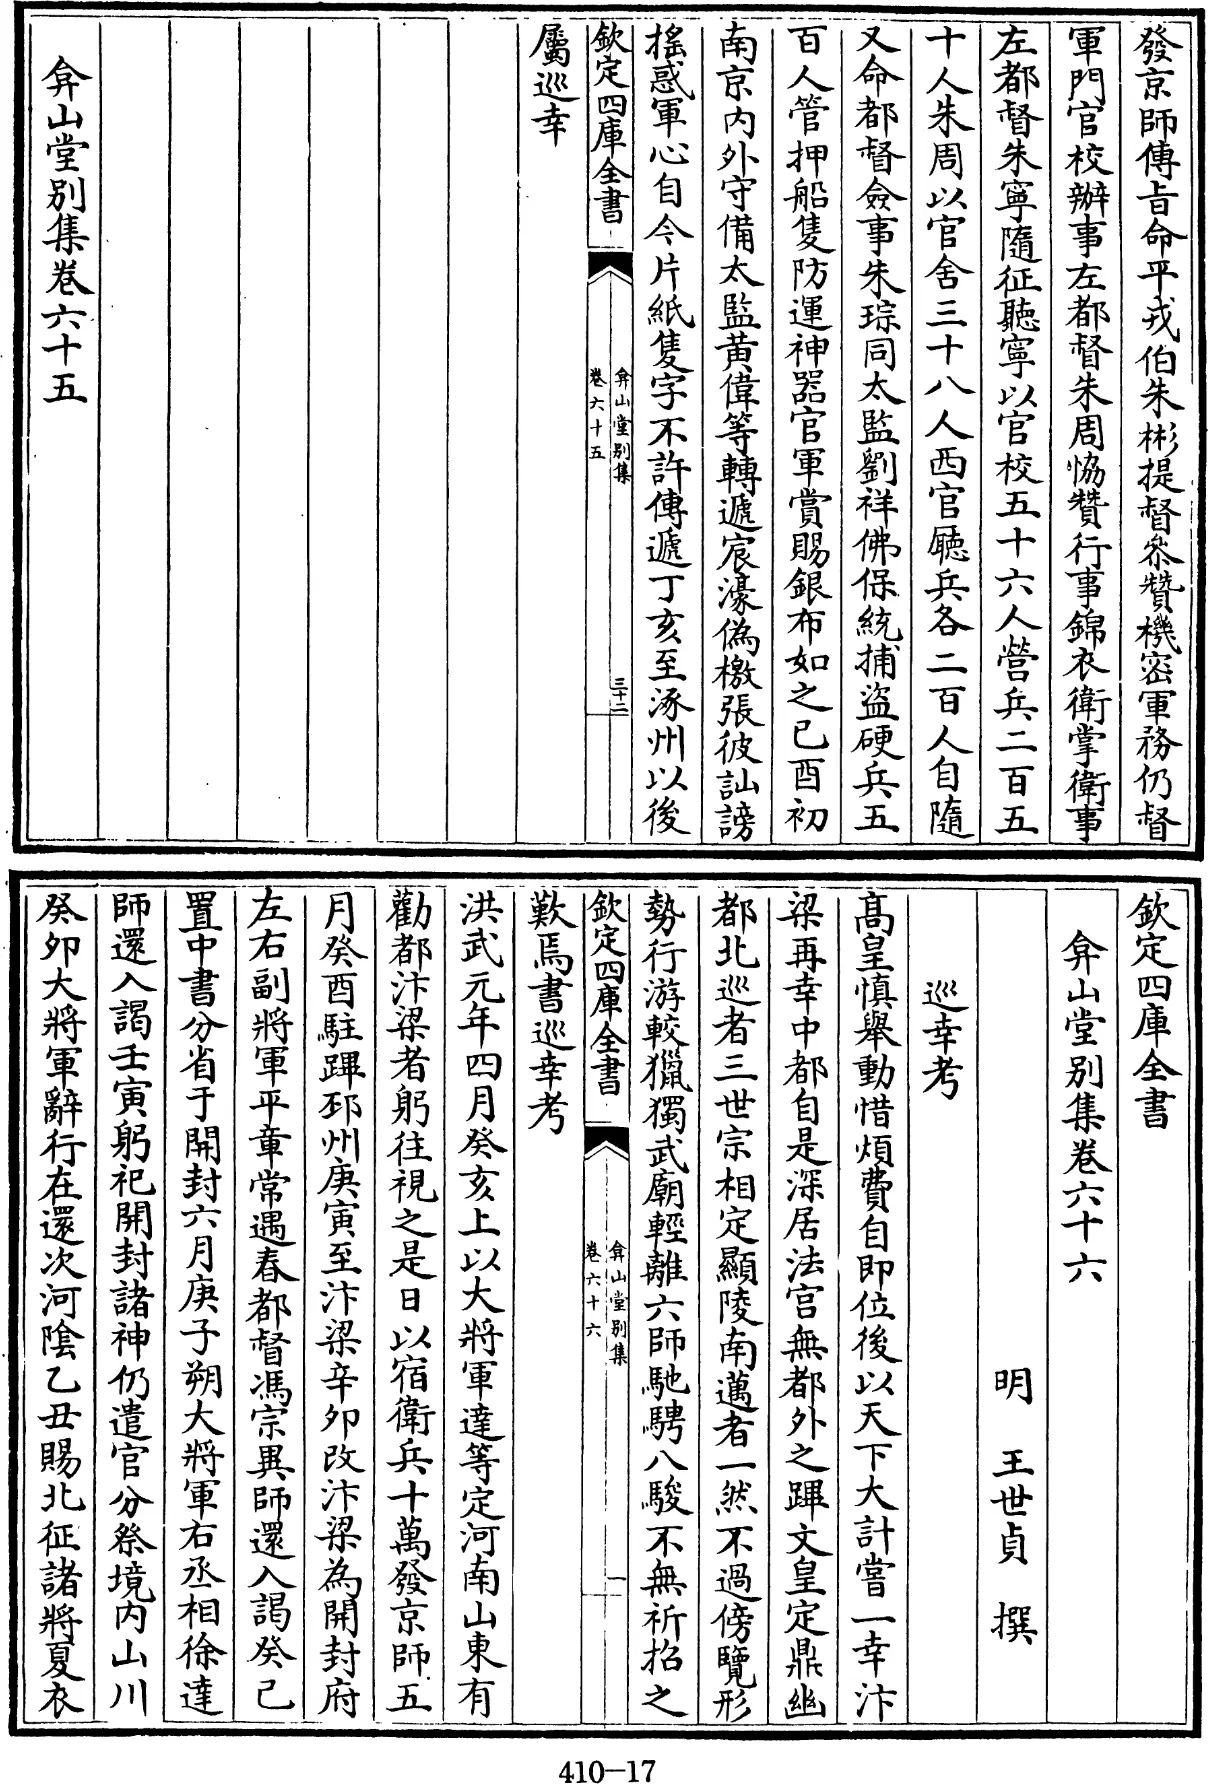 發京師傳旨命平戎伯朱彬提督叅贊機密軍務仍督
軍門官校辦事左都督朱周恊贊行事錦衣衛掌衛事
左都督朱寧隨征聽寧以官校五十六人營兵二百五
十人朱周以官舍三十八人西官廳兵各二百人自隨
又命都督僉事朱琮同太監劉祥佛保統捕盜硬兵五
百人管押船隻防運神器官軍賞賜銀布如之已酉初
南京内外守備太監黄偉等轉遞宸濠偽檄張彼訕謗
揺惑軍心自今片紙隻字不許傳遞丁亥至涿州以後
欽定四庫全書
弇山堂别集
卷六十五
三十二
屬巡幸
弇山堂别集卷六十五
欽定四庫全書
弇山堂别集卷六十六
明 王世貞 撰
巡幸考
高皇慎舉動惜煩費自即位後以天下大計嘗一幸汴
梁再幸中都自是深居法宫無都外之蹕文皇定鼎幽
都北巡者三世宗相定顯陵南邁者一然不過傍覽形
勢行游較獵獨武廟輕離六師馳騁八駿不無祈招之
欽定四庫全書
弇山堂别集
卷六十六
一
歎焉書巡幸考
洪武元年四月癸亥上以大將軍達等定河南山東有
勸都汴梁者躬往視之是日以宿衛兵十萬發京師五
月癸酉駐蹕邳州庚寅至汴梁辛卯改汴梁為開封府
左右副將軍平章常遇春都督馮宗異師還入謁癸已
置中書分省于開封六月庚子朔大將軍右丞相徐達
師還入謁壬寅躬祀開封諸神仍遣官分祭境内山川
癸卯大將軍辭行在還次河陰乙丑賜北征諸將夏衣
410-17